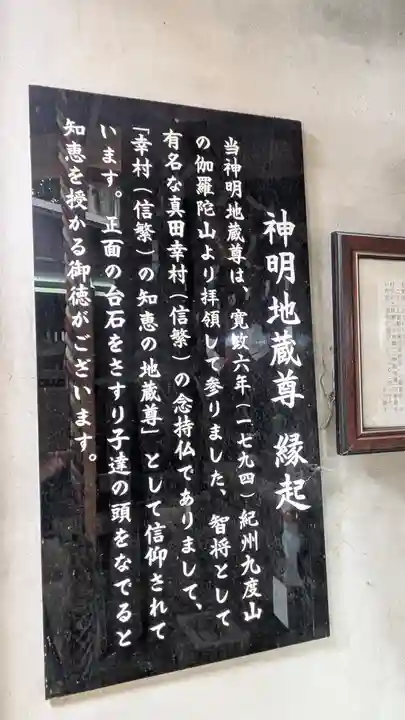 神明地蔵尊 縁起
当神明地蔵尊は、寛政六年(一七九四)紀州九度山
の伽羅陀山より拝領して参りました、智将として
有名な真田幸村(信繁)の念持仏でありまして、
「幸村(信繁)の知恵の地蔵尊」として信仰されて
います。正面の台石をさすり子達の頭をなでると
知恵を授かる御徳がございます。